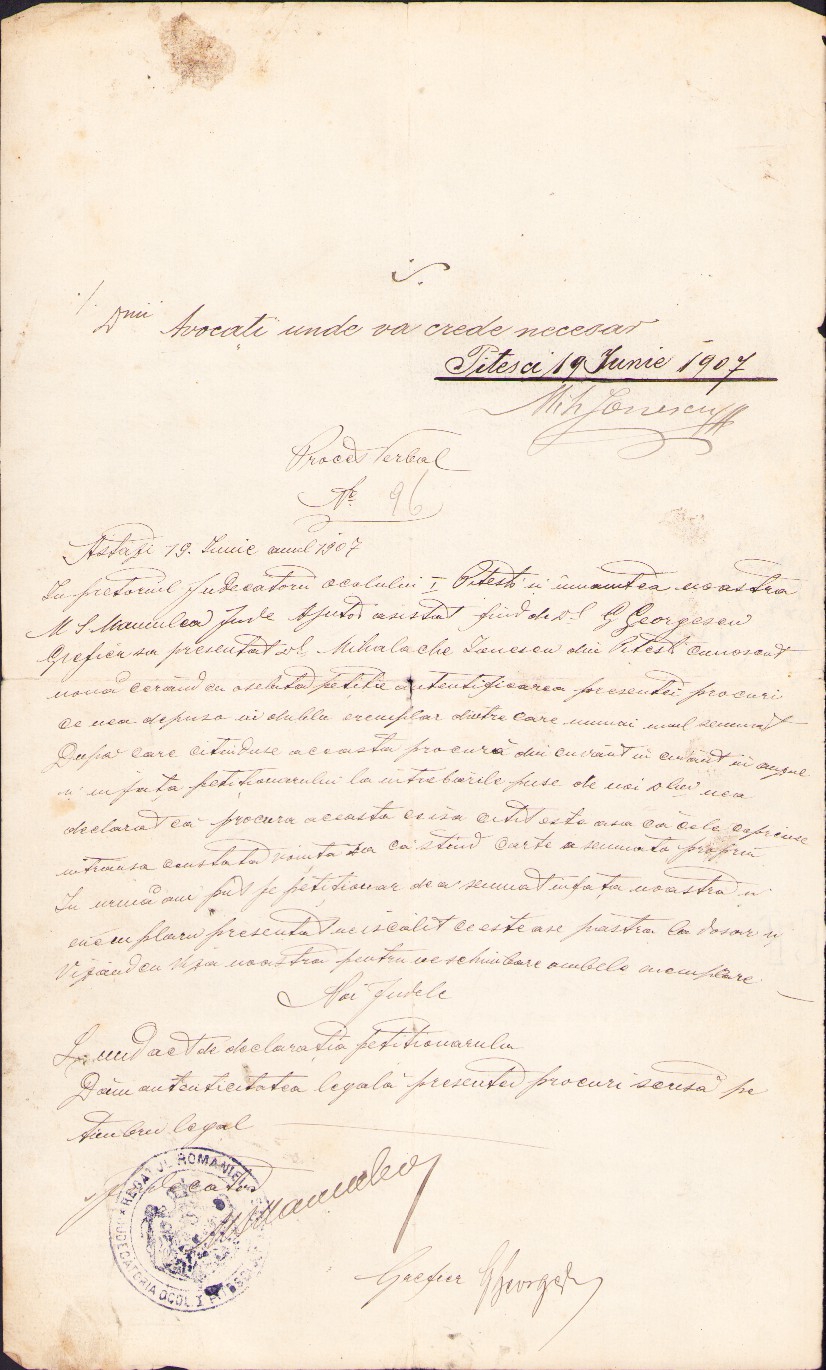 Dnii Avocați unde va crede necesar
Pitesci 19 Iunie 1907
Mih Ionescu
Proces Verbal
No. 96
Astazi 19. Iunie anul 1907
In pretoriul Judecătorii ocolului I Pitesti si innaintea noastră
M S Manulea Jude Ajutor asistat fiind de Dl G Georgescu
Grefier sa presentat Dl Mihalache Ionescu din Pitesti cunoscut
nouă cerând cu osebita petitie autentificarea presentei procuri
ce nea depuso in dublu exemplar dintre care numai unul semnat
Dupa care citinduse aceasta procură din cuvânt in cuvânt in auzul
si in fața petitionarului la intrebările puse de noi Dlui nea
declarat că procura aceasta ce isa citit este asa că cele coprinse
intransa constată vointa sa ca stiind carte a semnato propriu
In urmă am pus pe petitionar de a semnat in fața noastră si
exemplaru presentat neiscălit ce este a se păstra la dosar si
Vizând cu viza noastră pentru neschimbare ambele exemplare
Noi Judele
Luând act de declarația petitionarului
Dăm autenticitatea legală presentei procuri scrisă pe
timbru legal
REGATUL ROMANIEI
JUDECATORIA OCOL. I PITESCI
Grefier G Georgescu